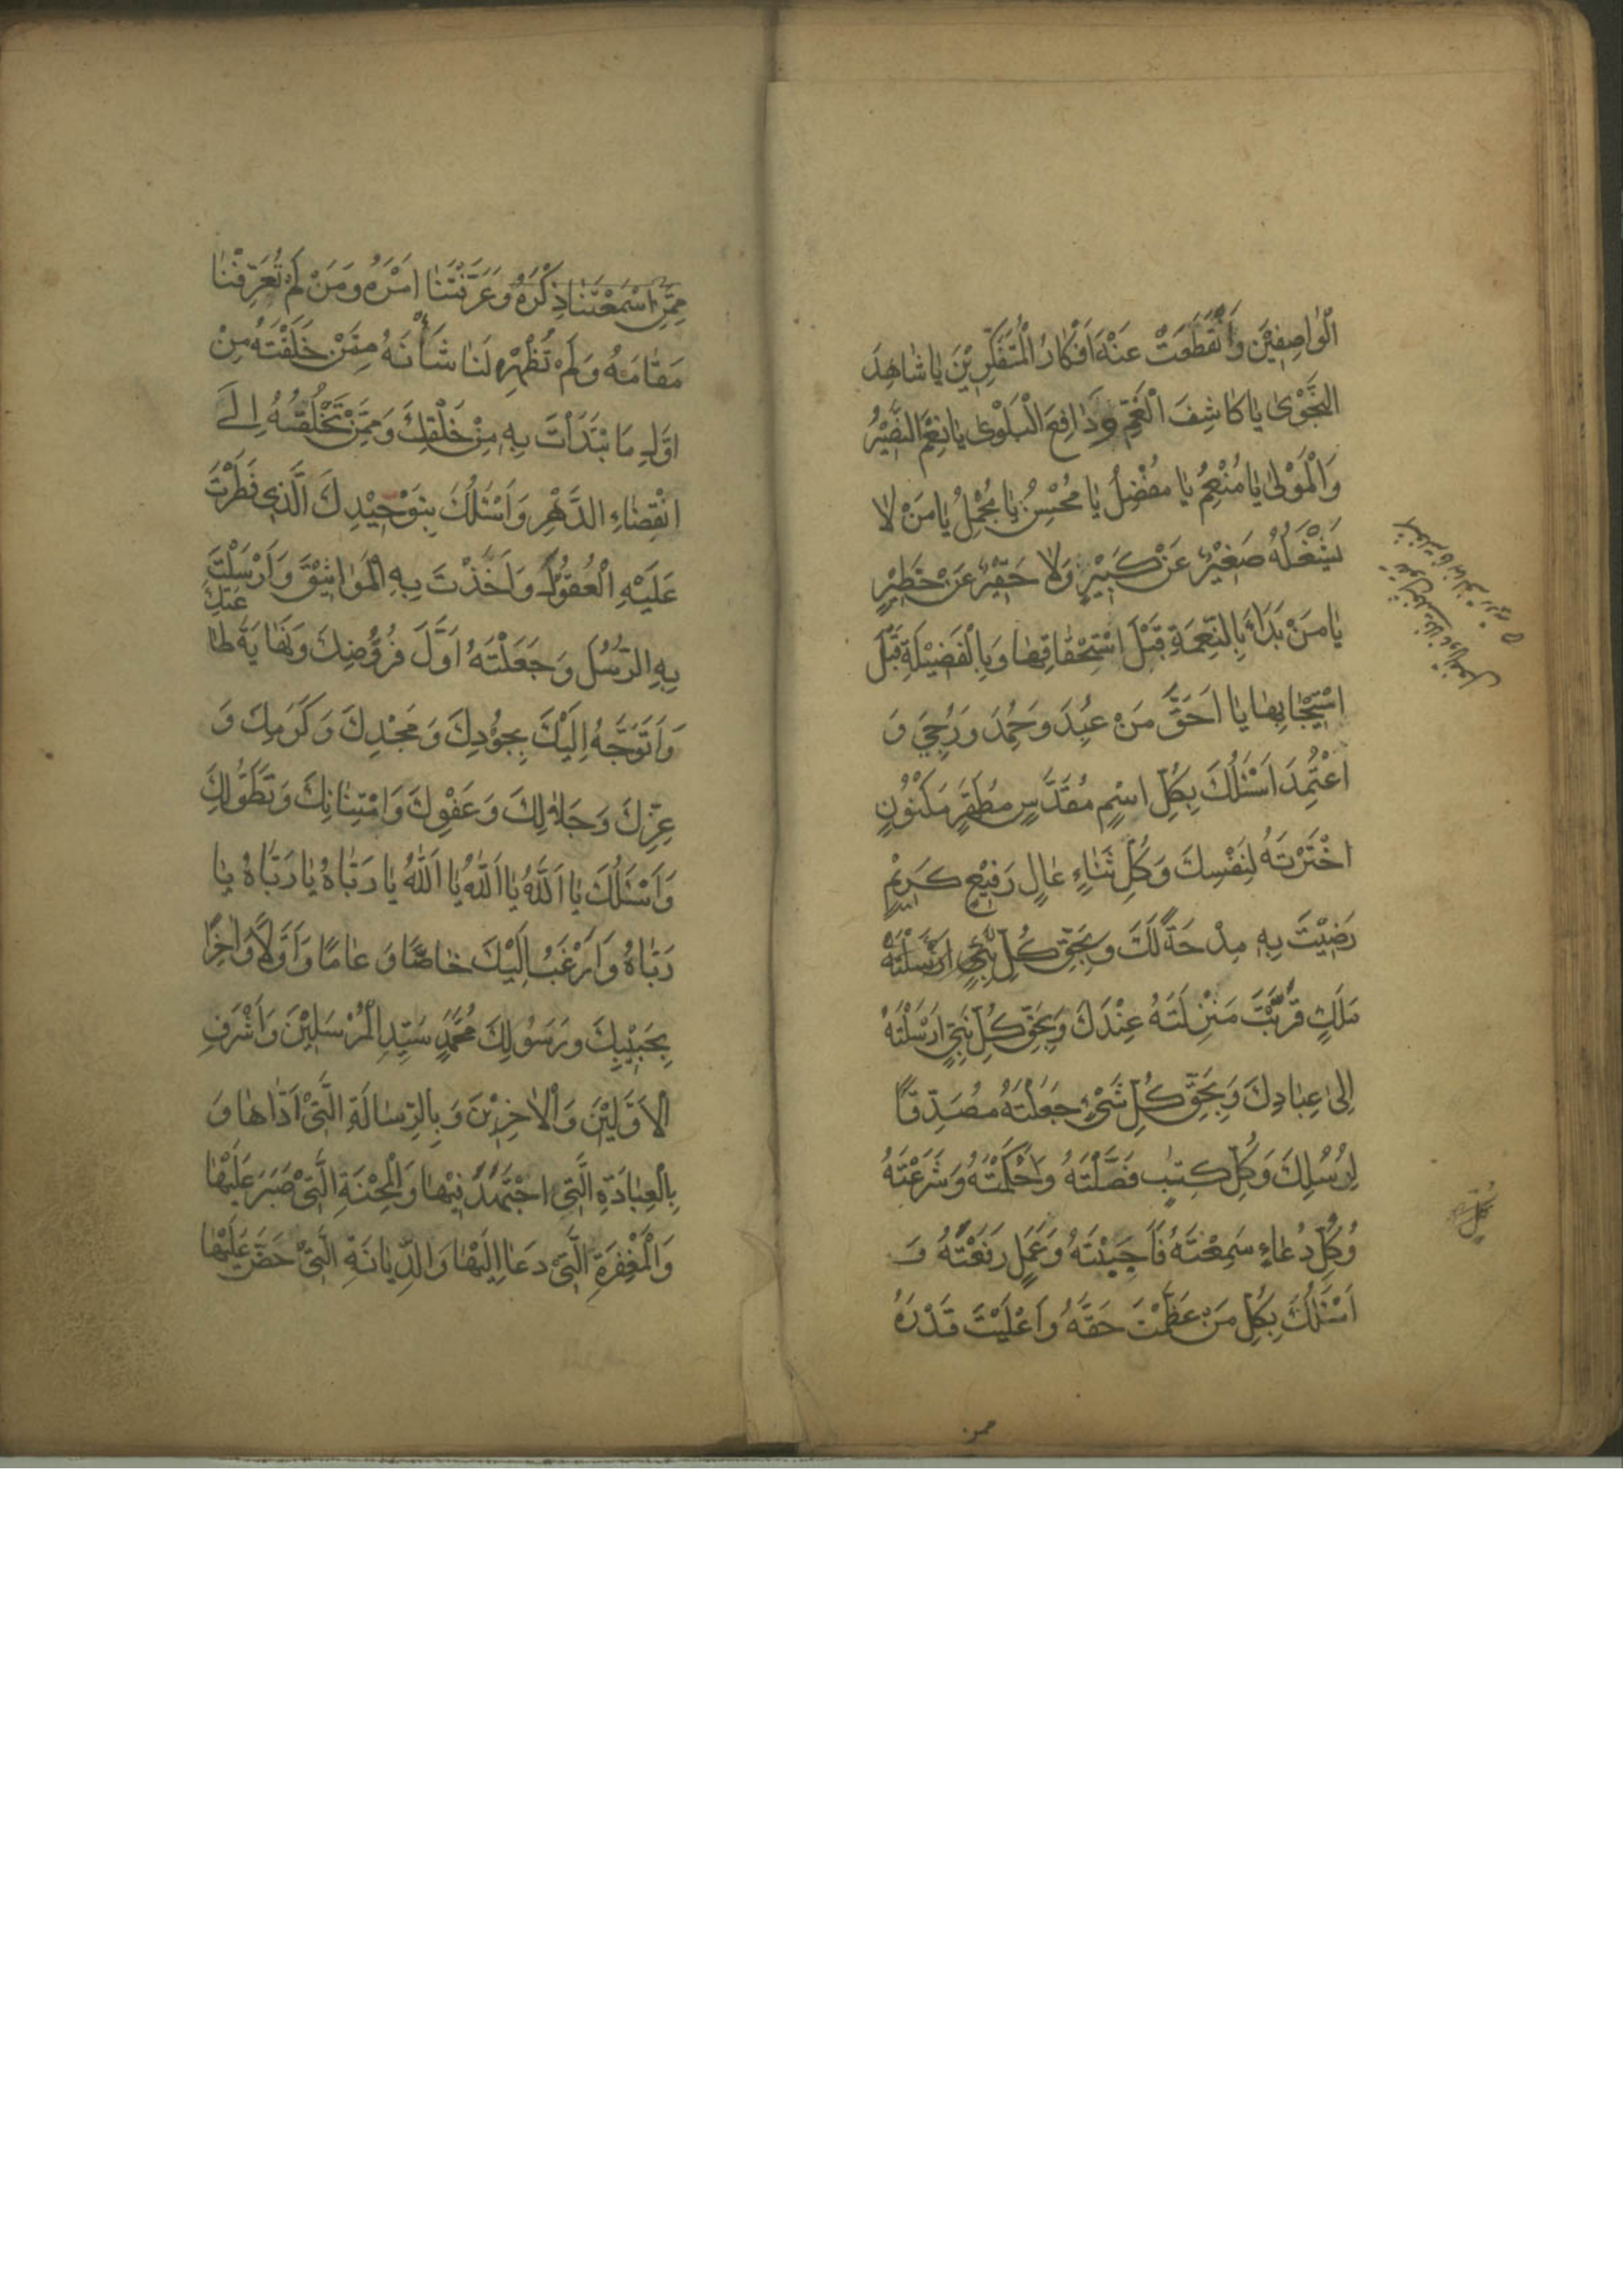 الْوٰاصِفِيْنَ وَانْقَطَعَتْ عَنْهُ اَفْكٰارُ الْمُتَفَكِّرِيْنَ يٰا شٰاهِدَ
النَّجْوٰى يٰا كٰاشِفَ الْغَمِّ وَدٰافِعَ الْبَلْوٰى يٰا نِعْمَ النَّصِيْرُ
وَالْمَوْلٰى يٰا مُنْعِمُ يٰا مُفْضِلُ يٰا مُحْسِنُ يٰا مُجْمِلُ يٰا مَنْ لٰا
يَشْغَلُهُ صَغِيْرٌ عَنْ كَبِيْرٍ وَلٰا حَقِيْرٌ عَنْ خَطِيْرٍ
يٰا مَنْ بَدَاَ بِالنِّعْمَةِ قَبْلَ اسْتِحْقٰاقِهٰا وَبِالْفَضِيْلَةِ قَبْلَ
اسْتِيْجٰابِهٰا يٰا اَحَقَّ مَنْ عُبِدَ وَحُمِدَ وَرُجِيَ وَ
اعْتُمِدَ اَسْئَلُكَ بِكُلِّ اسْمٍ مُقَدَّسٍ مُطَهَّرٍ مَكْنُوْنٍ
اخْتَرْتَهُ لِنَفْسِكَ وَكُلِّ ثَنٰاءٍ عٰالٍ رَفِيْعٍ كَرِيْمٍ
رَضِيْتَ بِهِ مِدْحَةً لَكَ وَبِحَقِّ كُلِّ نَبِيٍّ اَرْسَلْتَهُ
مَلَكٍ قَرَّبْتَ مَنْزِلَتَهُ عِنْدَكَ وَبِحَقِّ كُلِّ نَبِيٍّ اَرْسَلْتَهُ
اِلٰى عِبٰادِكَ وَبِحَقِّ كُلِّ شَيْءٍ جَعَلْتَهُ مُصَدِّقًا
لِرُسُلِكَ وَكُلِّ كِتٰبٍ فَصَّلْتَهُ وَاَحْكَمْتَهُ وَشَرَعْتَهُ
وَكُلِّ دُعٰاءٍ سَمِعْتَهُ فَاَجَبْتَهُ وَعَمَلٍ رَفَعْتَهُ وَ
اَسْئَلُكَ بِكُلِّ مَنْ عَظَّمْتَ حَقَّهُ وَاَعْلَيْتَ قَدْرَهُ
ممن
مِمَّنْ اَسْمَعْتَنٰا ذِكْرَهُ وَعَرَّفْتَنٰا اَمْرَهُ وَمَنْ لَمْ تُعَرِّفْنٰا
مَقٰامَهُ وَلَمْ تُظْهِرْ لَنٰا شَأْنَهُ مِمَّنْ خَلَقْتَهُ مِنْ
اَوَّلِ مَا ابْتَدَأْتَ بِهِ مِنْ خَلْقِكَ وَمِمَّنْ تَخْلُقُهُ اِلَى
انْقِضٰاءِ الدَّهْرِ وَاَسْئَلُكَ بِتَوْحِيْدِكَ الَّذِي فَطَرْتَ
عَلَيْهِ الْعُقُوْلَ وَاَخَذْتَ بِهِ الْمَوٰاثِيْقَ وَاَرْسَلْتَ
بِهِ الرُّسُلَ وَجَعَلْتَهُ اَوَّلَ فُرُوْضِكَ وَنِهٰايَةَ طٰاعَتِكَ
وَاَتَوَجَّهُ اِلَيْكَ بِجُوْدِكَ وَمَجْدِكَ وَكَرَمِكَ وَ
عِزِّكَ وَجَلٰالِكَ وَعَفْوِكَ وَامْتِنٰانِكَ وَتَطَوُّلِكَ
وَاَسْئَلُكَ يٰا اَللّٰهُ يٰا اَللّٰهُ يٰا اَللّٰهُ يٰا رَبّٰاهُ يٰا رَبّٰاهُ يٰا
رَبّٰاهُ وَاَرْغَبُ اِلَيْكَ خٰاصًّا وَعٰامًّا وَاَوَّلًا وَاٰخِرًا
بِحَبِيْبِكَ وَرَسُوْلِكَ مُحَمَّدٍ سَيِّدِ الْمُرْسَلِيْنَ وَاَشْرَفِ
الْاَوَّلِيْنَ وَالْاٰخِرِيْنَ وَبِالرِّسٰالَةِ الَّتِيْ اَدّٰاهٰا وَ
بِالْعِبٰادَةِ الَّتِي اجْتَهَدَ فِيْهٰا وَالْمِحْنَةِ الَّتِيْ صَبَرَ عَلَيْهٰا
وَالْمَغْفِرَةِ الَّتِيْ دَعٰا اِلَيْهٰا وَالدِّيٰانَةِ الَّتِيْ حَضَّ عَلَيْهٰا